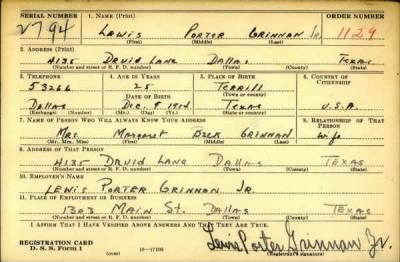 SERIAL NUMBER 1. NAME (Print) ORDER NUMBER
V794 LEWIS PORTER GRINNAN Jr. 1129
(First) (Middle) (Last)
2. ADDRESS (Print)
4135 DRUID LANE DALLAS TEXAS
(Number and street or R. F. D. number) (Town) (County) (State)
3. TELEPHONE 4. AGE IN YEARS 5. PLACE OF BIRTH 6. COUNTRY OF CITIZENSHIP
53266 25 TERRELL
DATE OF BIRTH (Town or county)
DALLAS DEC. 9 1914 TEXAS U.S.A.
(Exchange) (Number) (Mo.) (Day) (Yr.) (State or country)
7. NAME OF PERSON WHO WILL ALWAYS KNOW YOUR ADDRESS 8. RELATIONSHIP OF THAT PERSON
MRS. MARGARET GRINNAN wife
(Mr., Mrs., Miss) (First) (Middle) (Last)
9. ADDRESS OF THAT PERSON
4135 DRUID LANE DALLAS TEXAS
(Number and street or R. F. D. number) (Town) (County) (State)
10. EMPLOYER'S NAME
LEWIS PORTER GRINNAN JR.
11. PLACE OF EMPLOYMENT OR BUSINESS
1303 MAIN ST. DALLAS TEXAS
(Number and street or R. F. D. number) (Town) (County) (State)
I AFFIRM THAT I HAVE VERIFIED ABOVE ANSWERS AND THAT THEY ARE TRUE.
REGISTRATION CARD Lewis Porter Grinnan Jr.
D. S. S. Form 1 (over) 16-17105 (Registrant's signature)